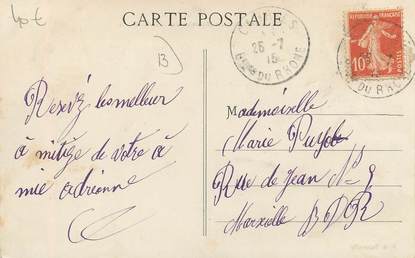 40€
CARTE POSTALE
B
26-7
15
DU RHONE
RÉPUBLIQUE FRANÇAISE
10c
POSTES
DU RHONE
Resevéz lesmelleur
à mitige de votre a
mie adrienne
Mademoiselle
Marie
Rue de Jean N=
Marseille B D R